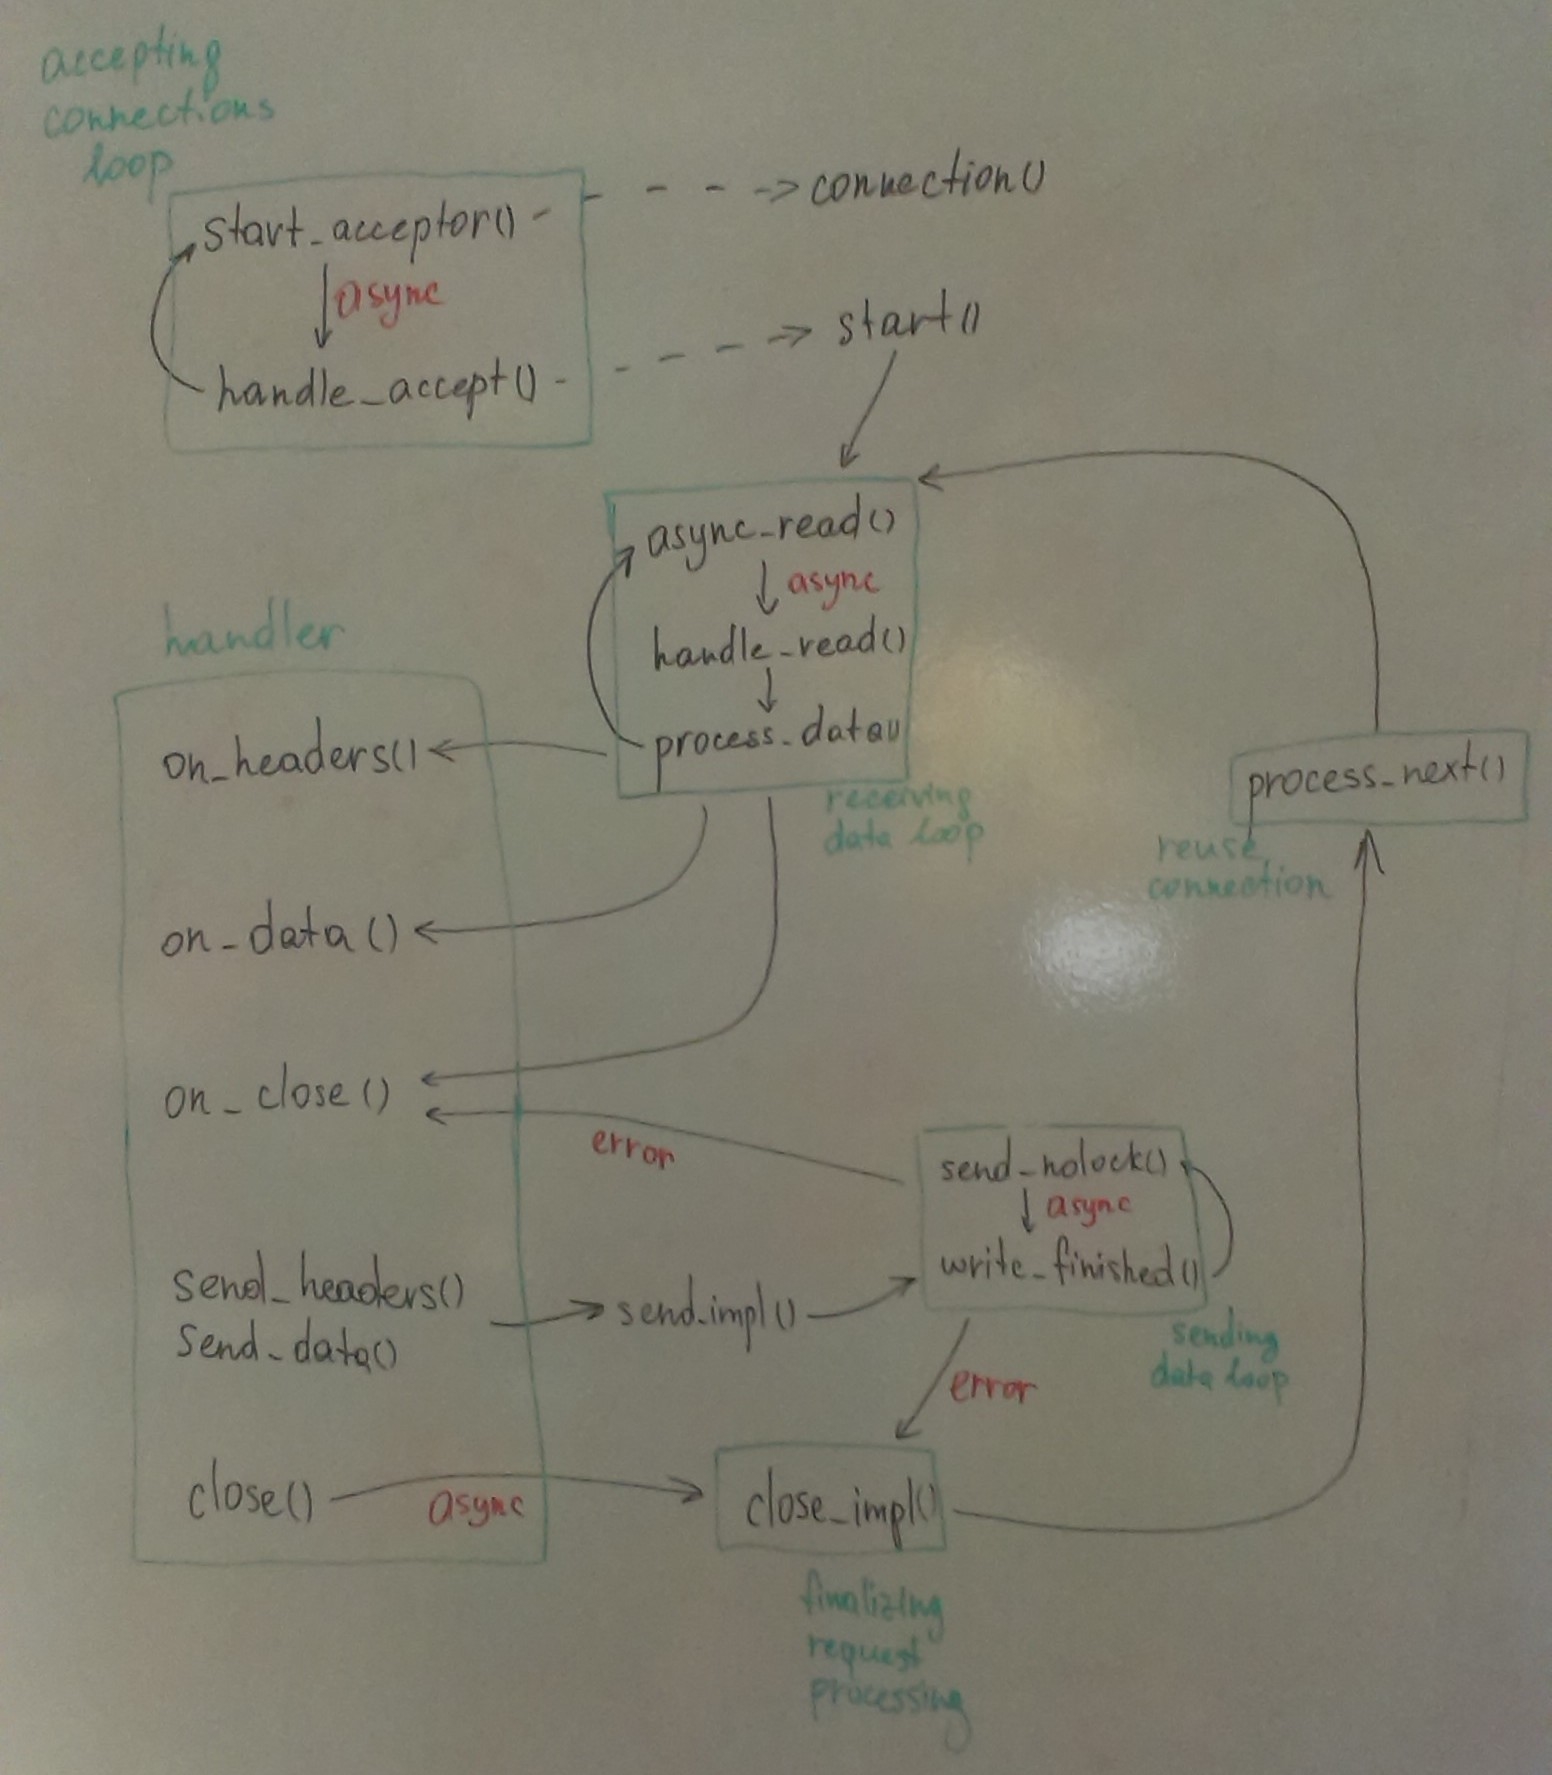 accepting
connections
loop
start_acceptor()
connection()
async
handle_accept()
start()
async_read()
async
handle_read()
process_data()
receiving
data loop
handler
on_headers()
on_data()
on_close()
error
send_headers()
send_data()
send_impl()
send_nolock()
async
write_finished()
sending
data loop
error
close()
async
close_impl()
finalizing
request
processing
process_next()
reuse
connection